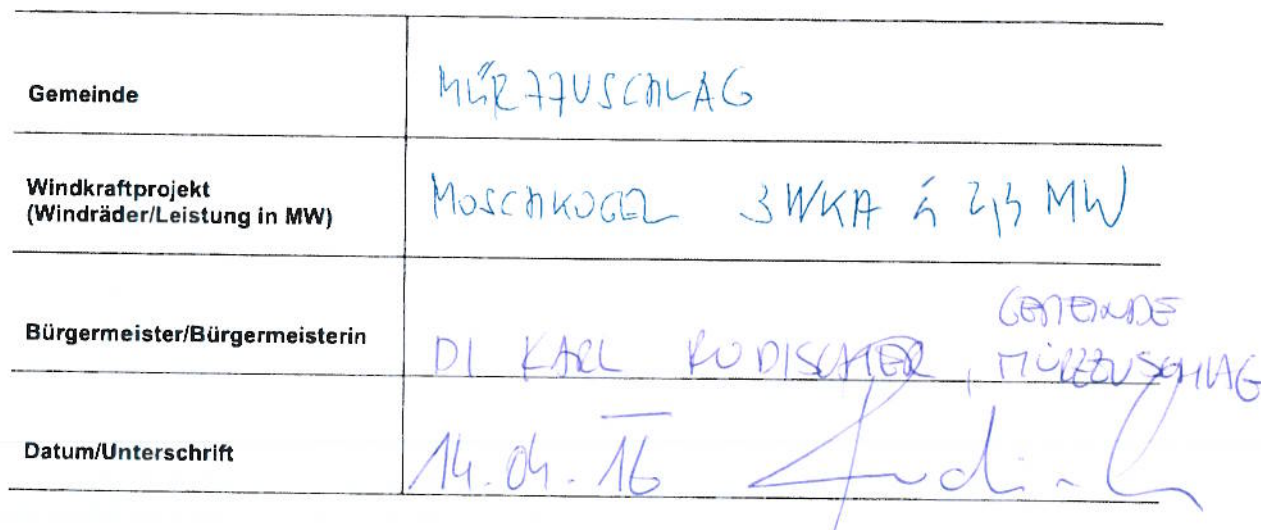 Gemeinde
MÜRZZUSCHLAG
Windkraftprojekt
(Windräder/Leistung in MW)
MOSCHKOGEL 3 WKA á 2,3 MW
Bürgermeister/Bürgermeisterin
DI KARL RUDISCHER, GEMEINDE
MÜRZZUSCHLAG
Datum/Unterschrift
14.04.16